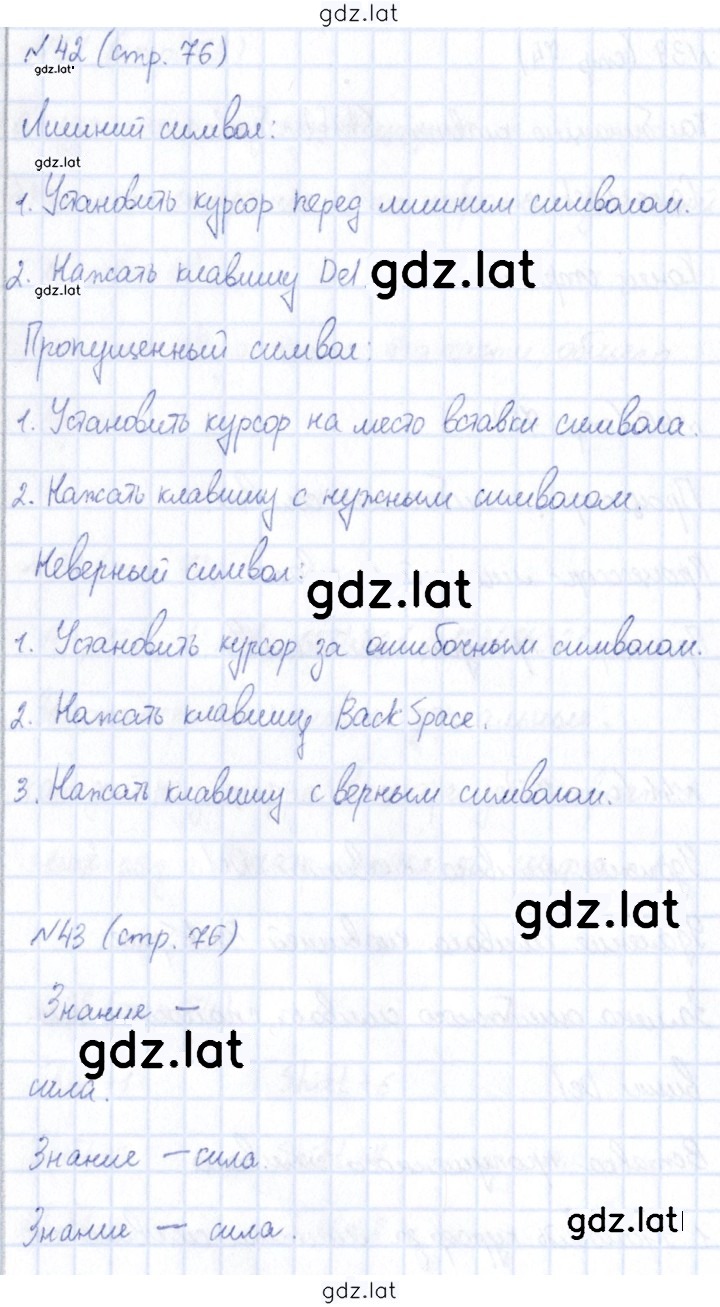 gdz.lat
№42 (стр. 76)
gdz.lat
Лишний символ:
gdz.lat
1. Установить курсор перед лишним символом.
2. Нажать клавишу Del. gdz.lat
gdz.lat
Пропущенный символ:
1. Установить курсор на место вставки символа.
2. Нажать клавишу с нужным символом.
Неверный символ:
gdz.lat
1. Установить курсор за ошибочным символом.
2. Нажать клавишу BackSpace.
3. Нажать клавишу с верным символом.
gdz.lat
№43 (стр. 76)
Знание –
gdz.lat
сила.
Знание – сила.
Знание – сила.
gdz.lat
gdz.lat